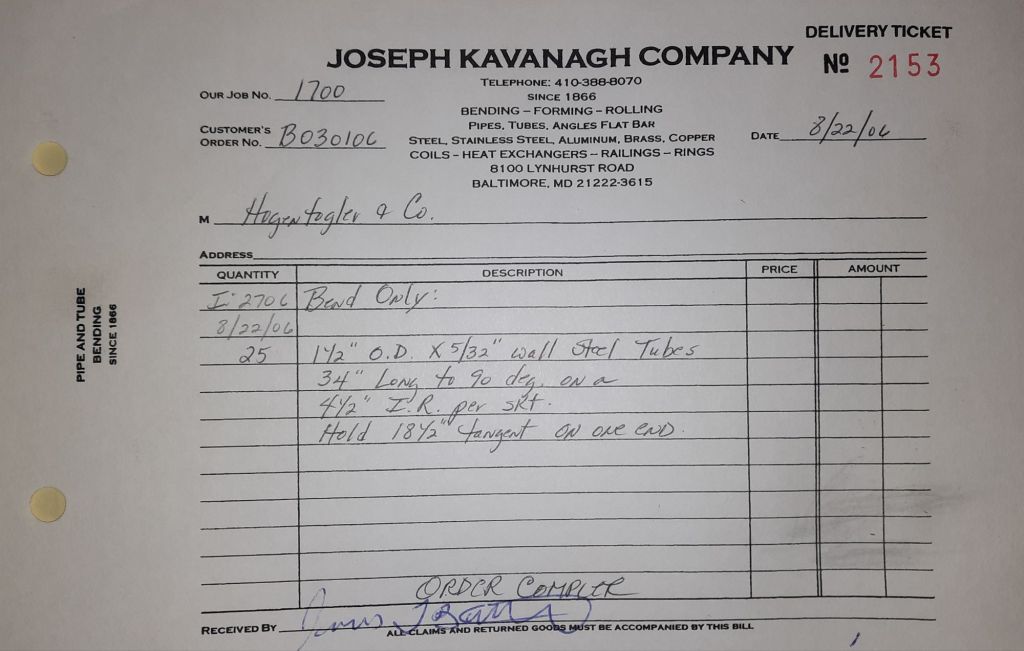 DELIVERY TICKET
JOSEPH KAVANAGH COMPANY
Nº 2153
TELEPHONE: 410-388-8070
SINCE 1866
OUR JOB NO. 1700
BENDING – FORMING – ROLLING
PIPES, TUBES, ANGLES FLAT BAR
CUSTOMER'S
ORDER NO. B030106
STEEL, STAINLESS STEEL, ALUMINUM, BRASS, COPPER
DATE 8/22/06
COILS – HEAT EXCHANGERS – RAILINGS – RINGS
8100 LYNHURST ROAD
BALTIMORE, MD 21222-3615
M Hogentogler & Co.
ADDRESS
QUANTITY DESCRIPTION PRICE AMOUNT
I-2706 Bend Only:
8/22/06
25 1 1/2" O.D. X 5/32" wall Steel Tubes
34" Long to 90 deg. on a
4 1/2" I.R. per skt.
Hold 18 1/2" tangent on one end.
ORDER COMPLETE
RECEIVED BY
ALL CLAIMS AND RETURNED GOODS MUST BE ACCOMPANIED BY THIS BILL
PIPE AND TUBE
BENDING
SINCE 1866